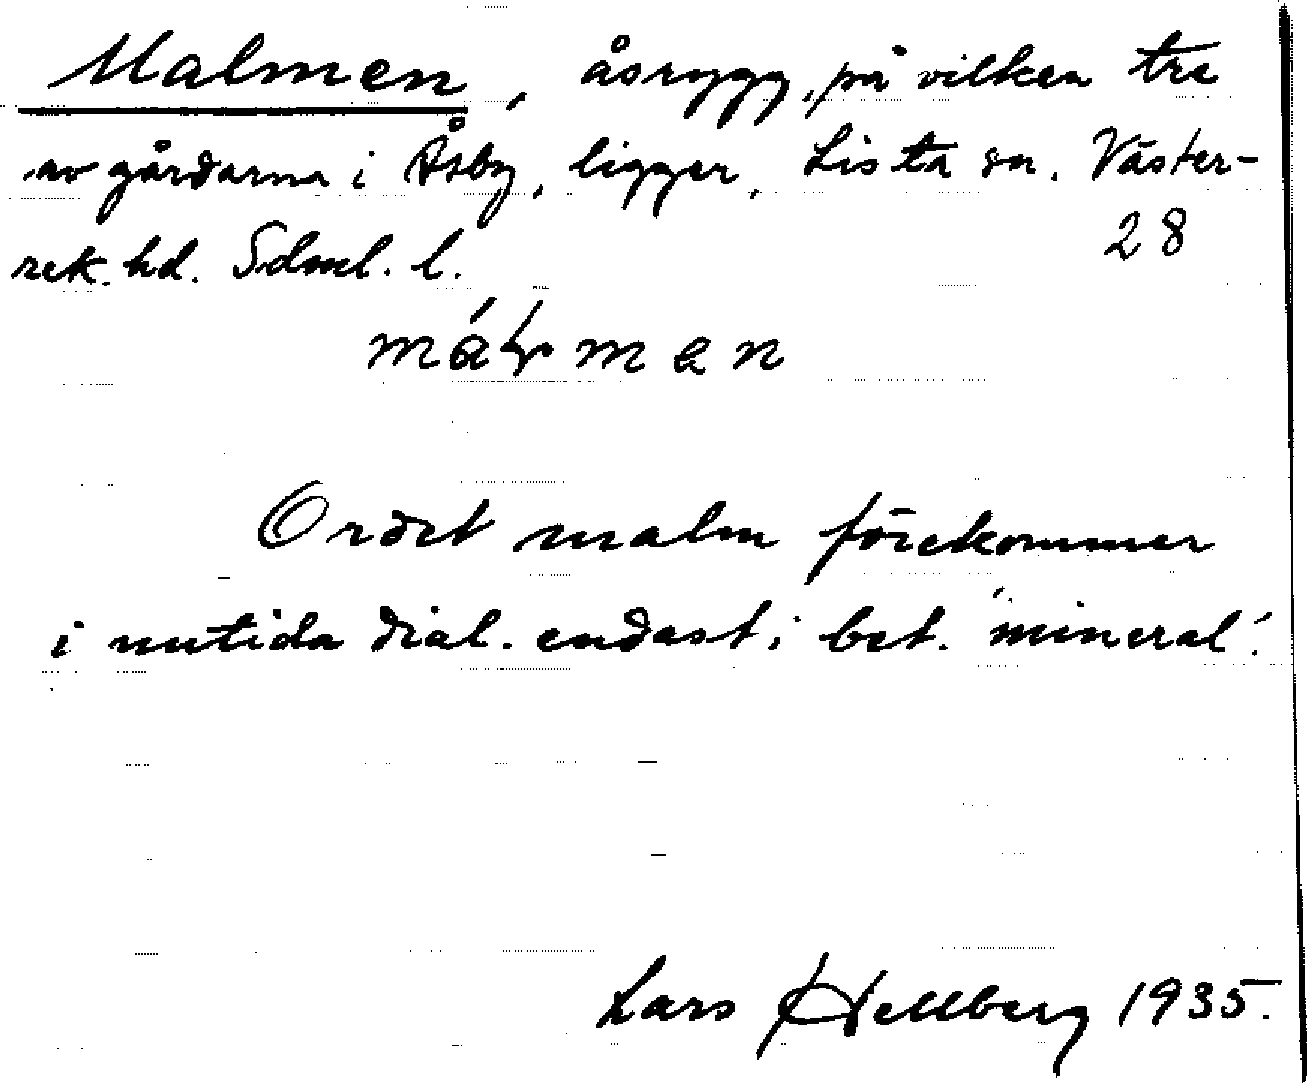 Malmen, åsrygg, på vilken tre
av gårdarna i Åsby, ligger, Lista sn. Väster-
rek. hd. Sdml. l.
28
Ordet malm förekommer
i nutida dial. endast i bet. "mineral".
Lars Hellberg 1935.